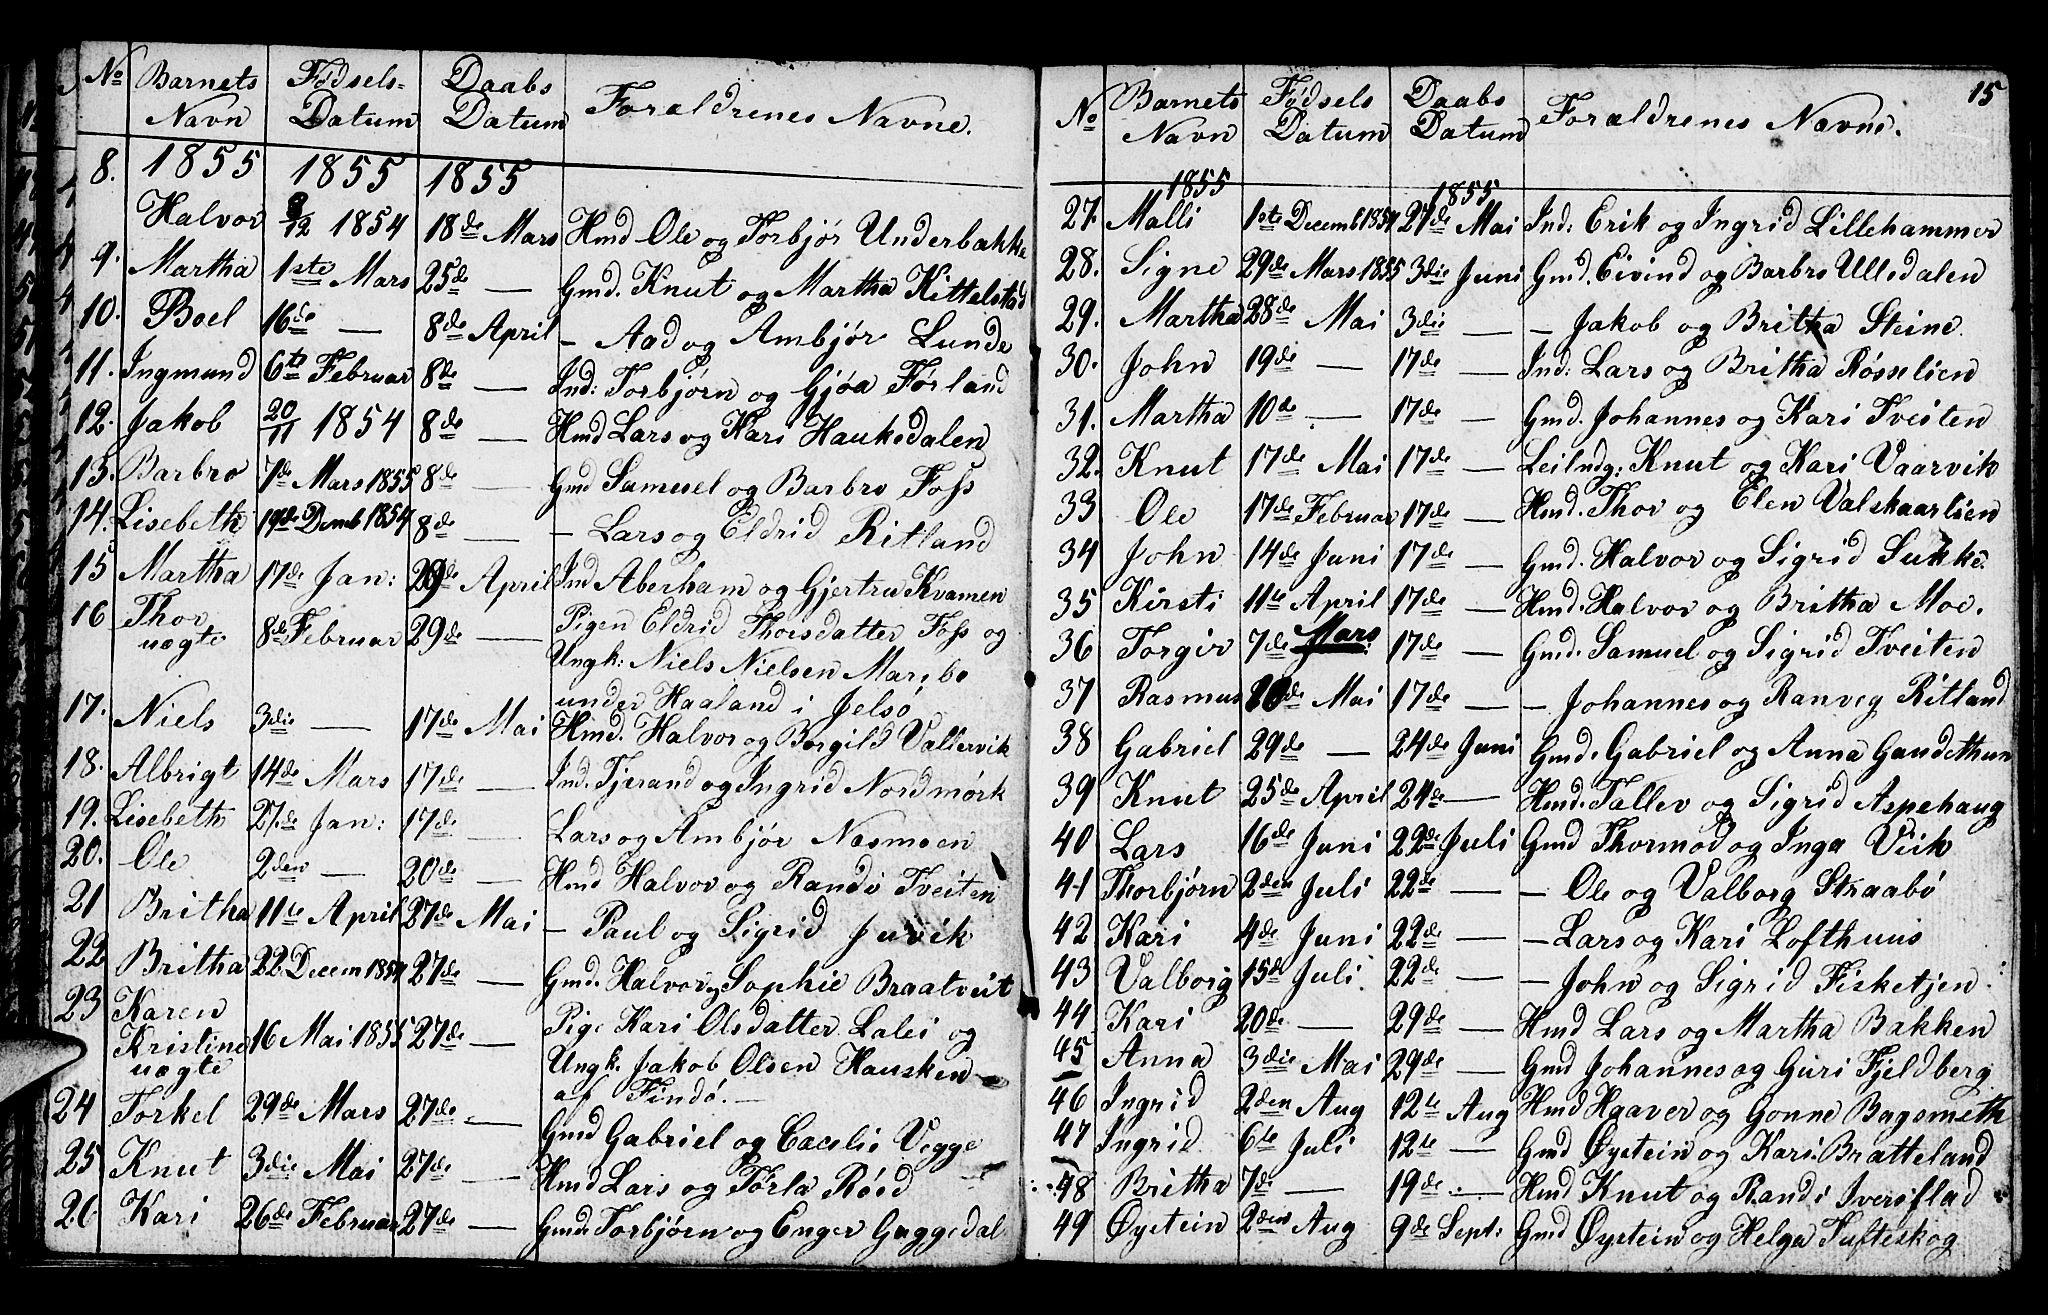 No Barnets Navn Fødsels- Datum Daabs Datum Forældrenes Navne.
8. 1855 1855 1855
Halvor 8/12 1854 18de Mars Hmd Ole og Torbjør Underbakke
9. Martha 1ste Mars 25de — Gmd. Knut og Martha Kittelstad
10. Boel 16de — 8de April - Aad og Ambjør Lunde
11. Ingmund 6te Februar 8de — Ind: Torbjørn og Gjøa Førland
12. Jakob 20/11 1854 8de — Hmd Lars og Kari Haukedalen
13. Barbro 7de Mars 1855 8de — Gmd Samuel og Barbro Foss
14. Lisebeth 19de Demb 1854 8de — - Lars og Eldrid Ritland
15 Martha 17de Jan: 29de April Ind Aberham og Gjertru Kvamen
16 Thor uægte 8de Februar 29de — Pigen Eldrid Thorsdatter Foss og
Ungk: Niels Nielsen Marebo
under Haaland i Jelsø
17. Niels 3die — 17de Mai Hmd. Halvor og Borgild Vallervik
18. Albrigt 14de Mars 17de — Ind. Tjerand og Ingrid Nordmørk
19. Lisebeth 27.de Jan: 17de — Lars og Ambjør Næsmoen
20. Ole 2den — 20de — Hmd Halvor og Randi Tveiten
21 Britha 11te April 27de Mai - Paul og Sigrid Juvik
22 Britha 22 Decem 1854 27de — Gmd. Halvor og Sophie Braatveit
23 Karen Kristine uægte 16 Mai 1855 27de — Pige Kari Olsdatter Lalei og
Ungk. Jakob Olsen Hausken
af Findø. —
24 Torkel 29de Mars 27de — Gmd Gabriel og Cæcelie Vegge
25 Knut 3die Mai 27de — Hmd Lars og Tørla Røed
26 Kari 26de Februar 27de — Gmd: Torbjørn og Enger Guggedal
15
No Barnets Navn Fødsels Datum Daabs Datum Forældrenes Navne.
1855 1855
27. Malli 1ste Decemb 1854 27de Mai Ind: Erik og Ingrid Lillehammer
28. Signe 29de Mars 1855 3die Juni Gmd. Eivind og Barbro Ulledalen
29. Martha 28de Mai 3die — - Jakob og Britha Steine.
30. John 19de — 17de — Ind: Lars og Britha Røsselien
31. Martha 10de — 17de — Gmd. Johannes og Kari Tveiten
32. Knut 17de Mai 17de — Leilndg: Knut og Kari Vaarvik
33 Ole 17de Februar 17de — Hmd. Thor og Elen Valskaarlien
34 John 14de Juni 17de — Gmd. Halvor og Sigrid Sukke.
35 Kirsti 11te April 17de — Hmd. Halvor og Britha Moe.
36 Torgir 7de Mars 17de — Gmd. Samuel og Sigrid Tveiten
37 Rasmus 10de Mai 17de — - Johannes og Ranveg Ritland
38 Gabriel 29de — 24de Juni Gmd. Gabriel og Anna Gaudethun
39 Knut 25de April 24de — Hmd. Tallev og Sigrid Aspehaug
40 Lars 16de Juni 22de Juli Gmd Thormod og Inga Vik
41 Thorbjørn 2den Juli 22de — - Ole og Valborg Straabø
42 Kari 4de Juni 22de — - Lars og Kari Lofthuus
43 Valborg 15de Juli. 22de — - John og Sigrid Fisketjen.
44 Kari 20de — 29de — Hmd Lars og Martha Bakken
45 Anna 3die Mai 29de — Gmd Johannes og Guri Fjeldberg
46 Ingrid 2den Aug 12te Aug Hmd Haaver og Gonne Bagsmeth
47 Ingrid 6te Juli 12te — Gmd Øystein og Kari Bratteland
48 Britha 7de — 19de — Hmd Knut og Randi Iversflad
49 Øystein 2den Aug 9de Sept: Gmd Øystein og Helga Tufteskog